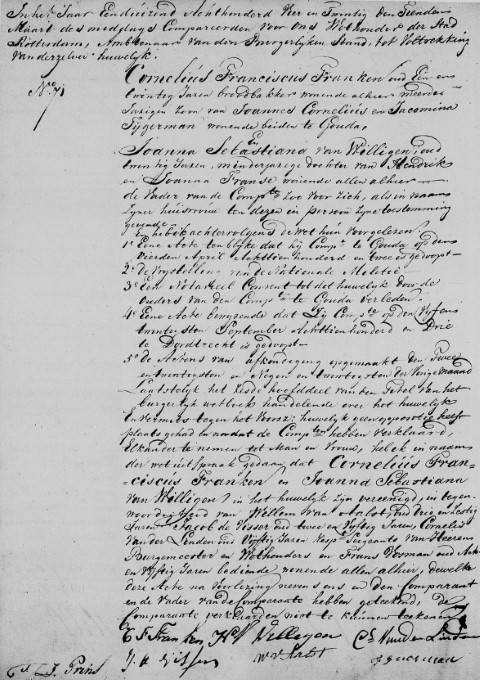 In het Jaar Eenduizend Achthonderd Vier en Twintig den Tienden
Maart des middags Compareerden voor ons Wethouder der Stad
Rotterdam, Ambtenaar van den Burgerlyken Stand, tot Voltrekking
van derzelver huwelijk.
Cornelius Franciscus Franken oud Een en
twintig Jaren broodbakker wonende alhier meerder-
jarigen Zoon van Joannes Cornelius en Jacomina
Tijgerman wonende beiden te Gouda,
En
Joanna Sebastiana van Willigen, oud
twintig Jaren, minderjarige dochter van Hendrik
en Joanna Franse wonende allen alhier
de Vader van de Compte zoo voor zich, als in naam
zyner huisvrouw ten dezen in persoon zyne toestemming
gevende
En heb ik achtervolgens de Wet hun voorgelezen
1o Eene Acte ten blyke dat hij Compt te Gouda op den
Vierden April Achttienhonderd en twee is gedoopt
2o de van de Nationale Militie
3o een Notarieel Consent tot dit huwelijk door de
ouders van den Compt te Gouda verleden.
4o Eene Acte dat Zij Compte op den Vyfen
twintigsten September Achttienhonderd en Drie
te Dordrecht is gedoopt
5o de Actens van afkondiging opgemaakt den Twee
entwintigsten en Negen en twintigsten der Vorige maand
Laatstelijk het Zesde hoofddeel van den Titel van het
burgerlyk wetboek handelende over het huwelijk
En vermits tegen het Voorsz: huwelijk geen oppositie heeft
plaats gehad en nadat de Compten hebben verklaard
Elkander te nemen tot Man en Vrouw, heb ik en naam
der wet uitspraak gedaan dat Cornelius Fran-
ciscus Franken en Joanna Sebastiana
van Willigen in het huwelijk zijn vereenigd, in tegen-
woordigheid van Willem van Aalst, oud drie en zestig
Jaren Jacob de Visser oud twee en Vyftig Jaren, Cornelis
van der Linden oud Vyftig Jaren Sergeants van Heeren
Burgemeester en Wethouders en Frans Bosman oud Acht
en vyftig Jaren bediende wonende allen alhier, dewelke
deze Acte na Voorlezing nevens ons en den Comparant
en de Vader van de Comparante hebben geteekend, de
Comparante verklaarden niet te kunnen teekenen
C F Franken H V Willegen Cs Van der Linden
J. de Visser W v Aalst